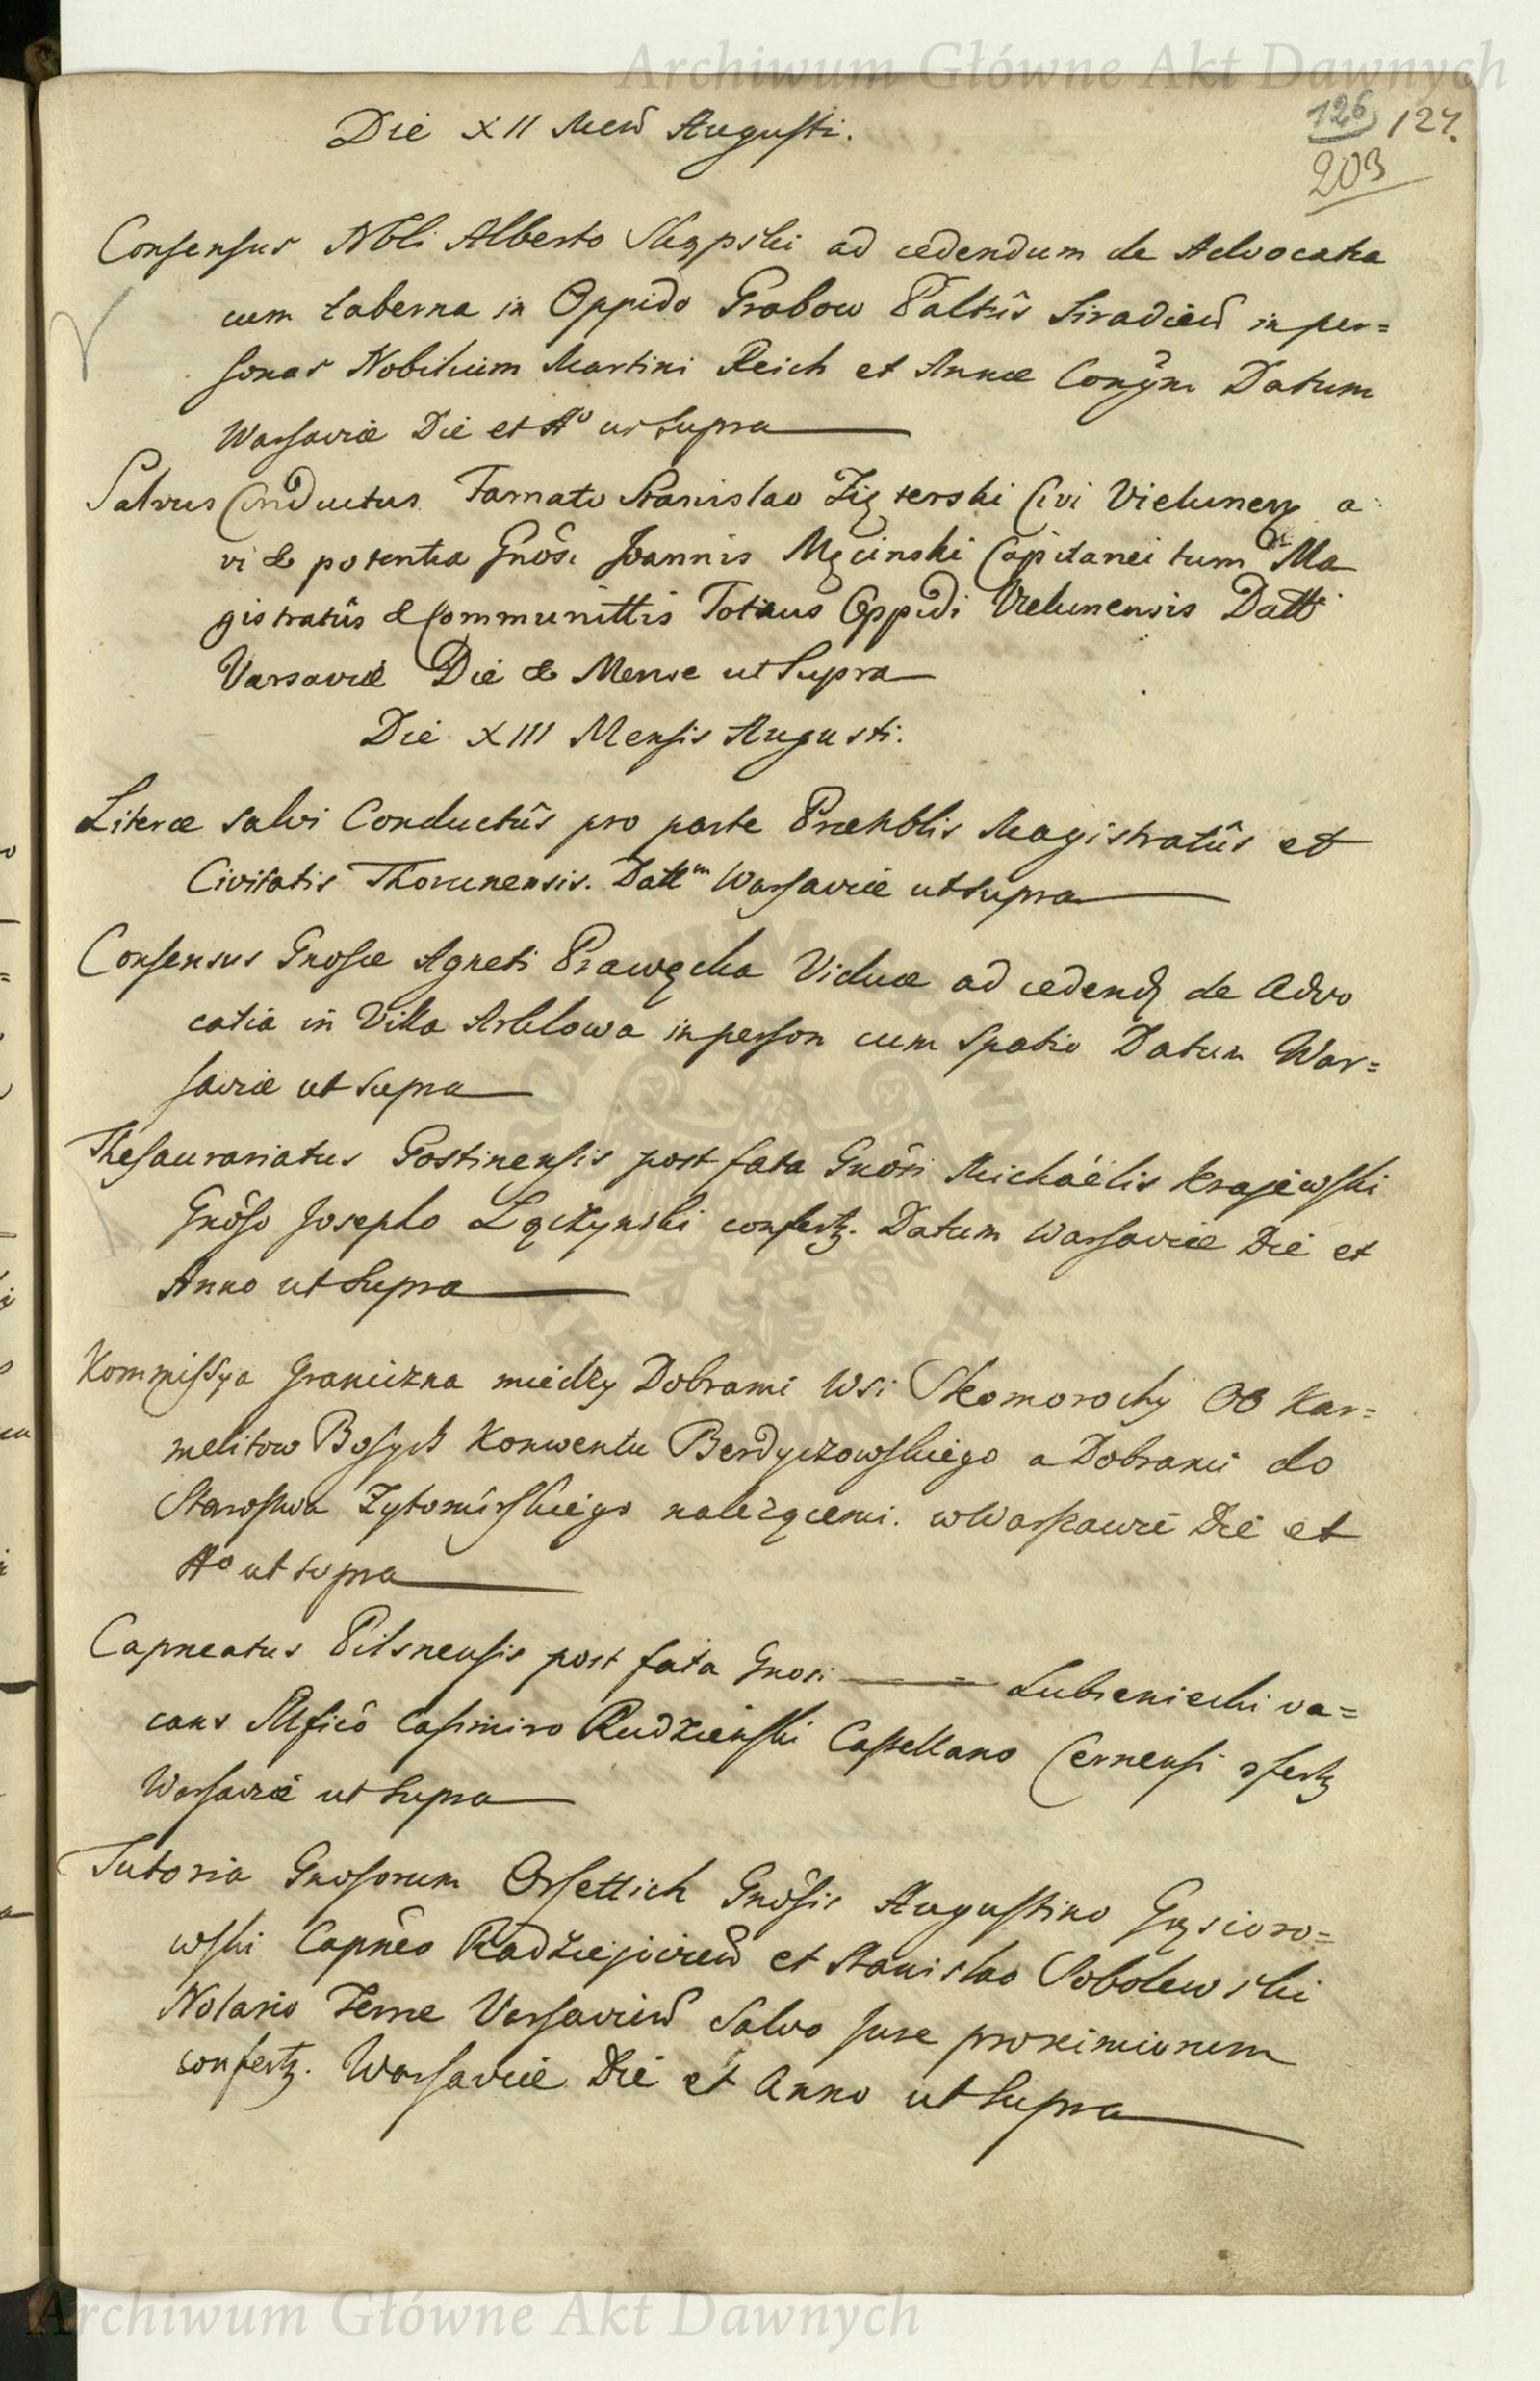 Archiwum Główne Akt Dawnych
126 127.
203
Die XII Mens Augusti.
Consensus Nbli Alberto Skąpski ad cedendum de Advocatia
cum taberna in Oppido Grabow Palttûs Siradien in per=
sonas Nobilium Martini Reich et Annæ Conjgm Datum
Warsaviæ Die et Ao ut supra
Salvus Conductus Famato Stanislao Zięterski Civi Vielunen a
vi & potentia Gnôsi Joannis Męcinski Capitanei tum Ma
gistratûs & Communittis Totius Oppidi Vielunensis Datt
Varsaviæ Die & Mense ut Supra
Die XIII Mensis Augusti.
Literæ salvi Conductûs pro parte Præhblis Magistratûs et
Civitatis Thorunensis. Dattm Warsaviæ ut supra
Consensus Gnosæ Agneti Prawęcka Viduæ ad cedend de Advo
catia in Villa Arklowa in person cum spatio Datum War=
saviæ ut supra
Thesaurariatus Gostinensis post fata Gnôsi Michaëlis Krajewski
Gnôso Josepho Łączynski confertz. Datum Warsaviæ Die et
Anno ut Supra
Kommissya Graniczna miedzy Dobrami Wsi Skomorochy OO Kar=
melitow Bosych Konwentu Berdyczowskiego a Dobrami do
Starostwa Zytomirskiego należącemi. w Warszawie Die et
Ao ut supra
Capneatus Pilsnensis post fata Gnosi Lubieniecki va=
cans Mficô Casimiro Rudzienski Castellano Cernensi ɔfertz
Warsaviæ ut Supra
Tutoria Gnosorum Orsettich Gnôsis Augustino Gąsioro=
wski Capnêo Radziejovien et Stanislao Sobolewski
Notario Terræ Varsavien Salvo Jure proximiorum
confertz. Warsaviæ Die et Anno ut Supra
Archiwum Główne Akt Dawnych